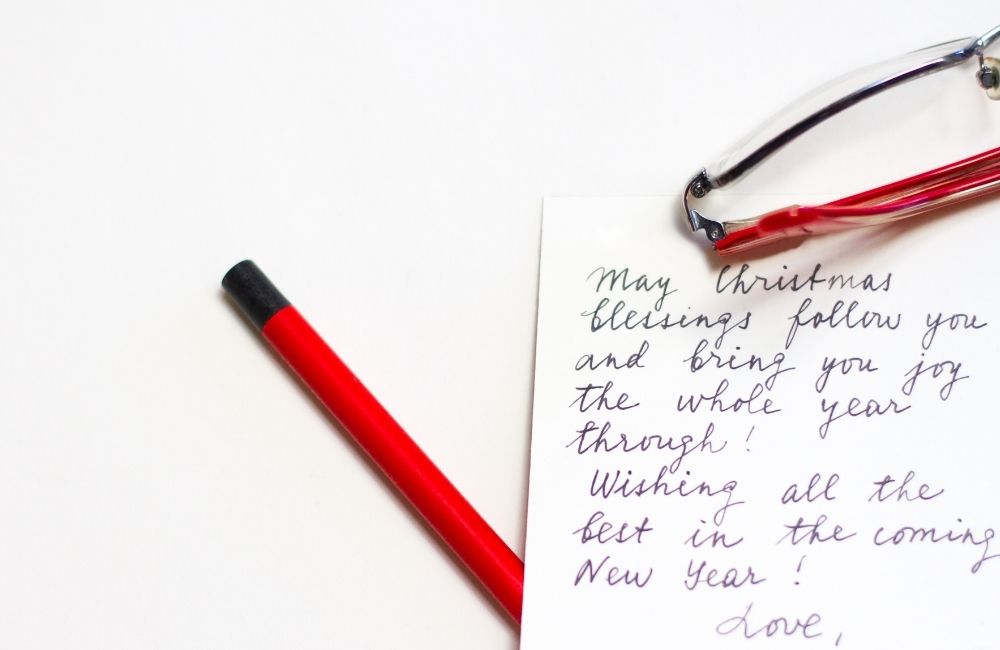 May Christmas
blessings follow you
and bring you joy
the whole year
through!
Wishing all the
best in the coming
New Year!
Love,